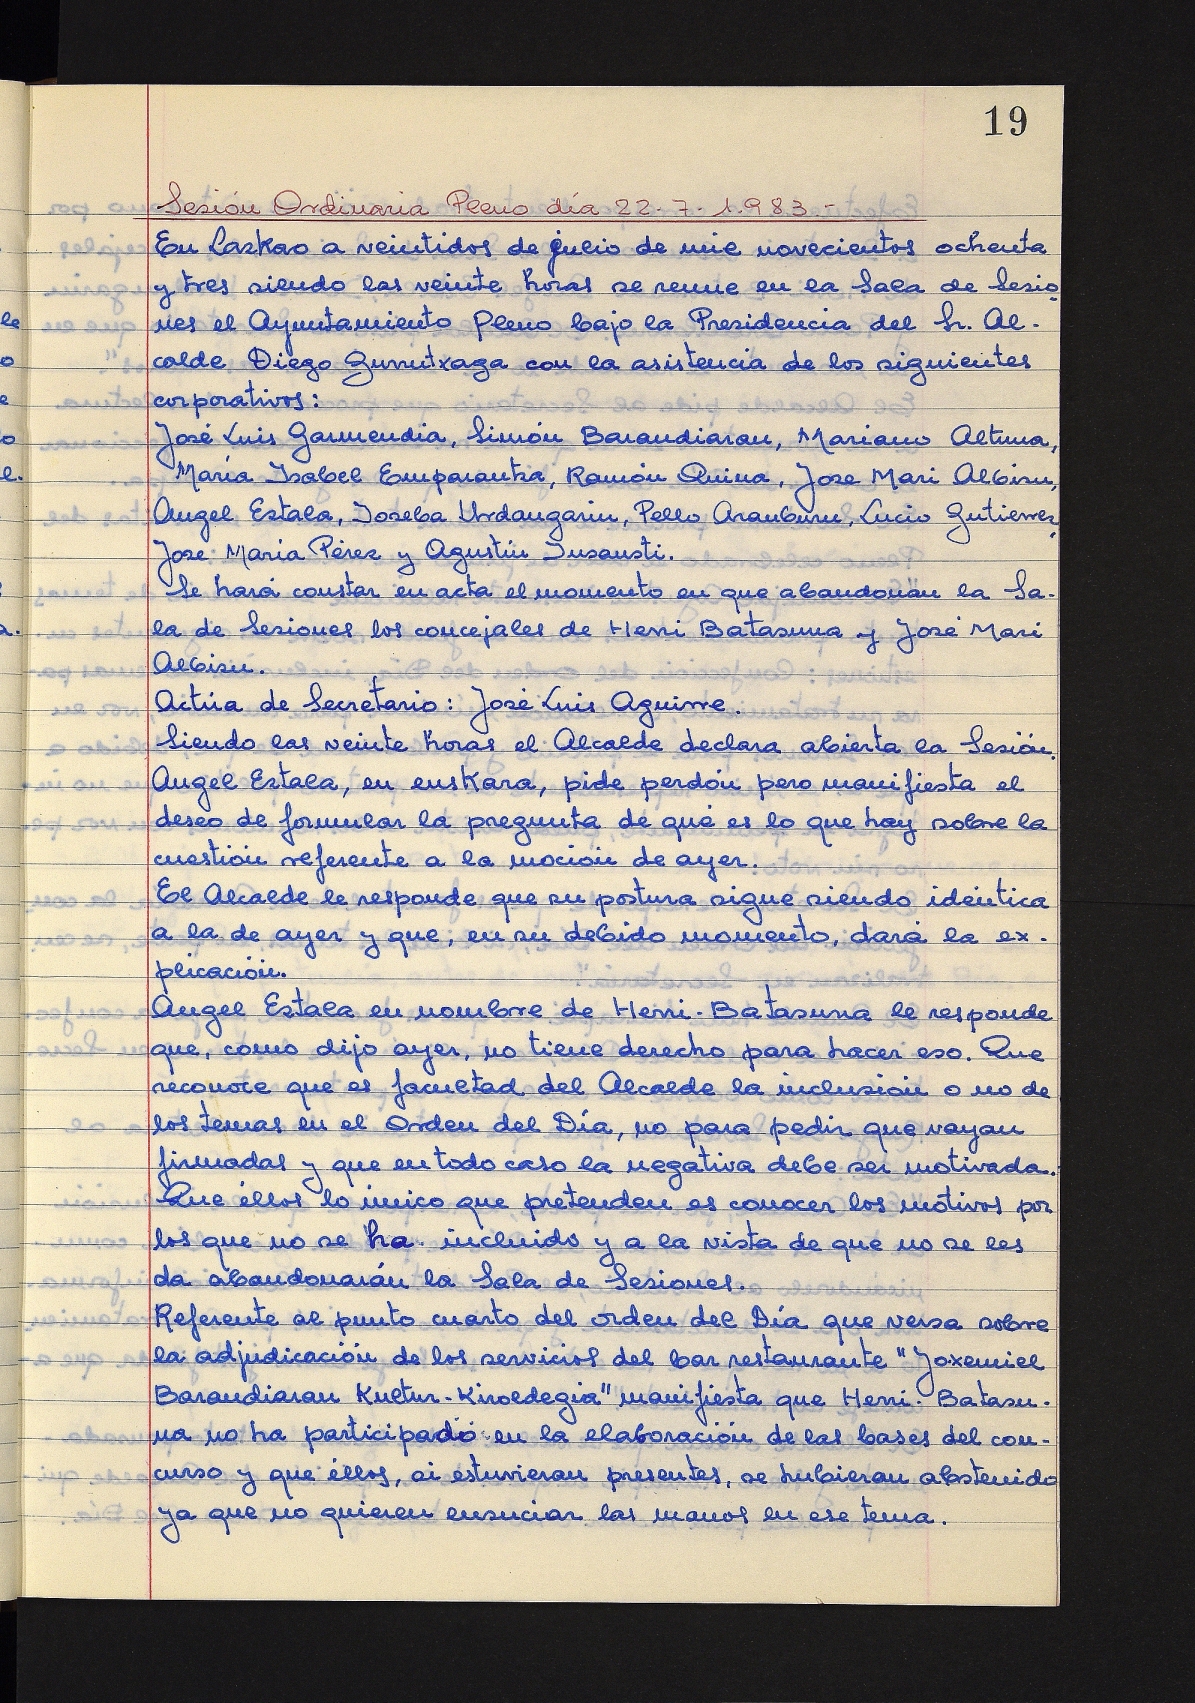 19
Sesión Ordinaria Pleno día 22-7-1.983-
En Lazkao a veintidos de julio de mil novecientos ochenta
y tres siendo las veinte horas se reune en la Sala de Sesio
nes el Ayuntamiento Pleno bajo la Presidencia del Sr. Al-
calde Diego Gurrutxaga con la asistencia de los siguientes
corporativos:
José Luis Garmendia, Simón Barandiaran, Mariano Altuna,
María Isabel Emparantza, Ramón Quina, Jose Mari Albisu,
Angel Estala, Joseba Urdangarin, Pello Aranburu, Lucio Gutierrez,
Jose María Pérez y Agustín Insausti.
Se hará constar en acta el momento en que abandonan la Sa-
la de Sesiones los concejales de Herri Batasuna y José Mari
Albisu.
Actúa de Secretario: José Luis Aguirre.
Siendo las veinte horas el Alcalde declara abierta la Sesión.
Angel Estala, en euskara, pide perdón pero manifiesta el
deseo de formular la pregunta de qué es lo que hay sobre la
cuestión referente a la moción de ayer.
El Alcalde le responde que su postura sigue siendo idéntica
a la de ayer y que, en su debido momento, dará la ex-
plicación.
Angel Estala en nombre de Herri-Batasuna le responde
que, como dijo ayer, no tiene derecho para hacer eso. Que
reconoce que es facultad del Alcalde la inclusión o no de
los temas en el Orden del Día, no para pedir que vayan
firmadas y que en todo caso la negativa debe ser motivada.
Que éllos lo único que pretenden es conocer los motivos por
los que no se ha incluido y a la vista de que no se les
da abandonarán la Sala de Sesiones.
Referente al punto cuarto del orden del Día que versa sobre
la adjudicación de los servicios del bar restaurante "Joxemiel
Barandiaran Kultur-Kiroldegia" manifiesta que Herri-Batasu-
na no ha participado en la elaboración de las bases del con-
curso y que éllos, si estuvieran presentes, se hubieran abstenido
ya que no quieren ensuciar las manos en ese tema.